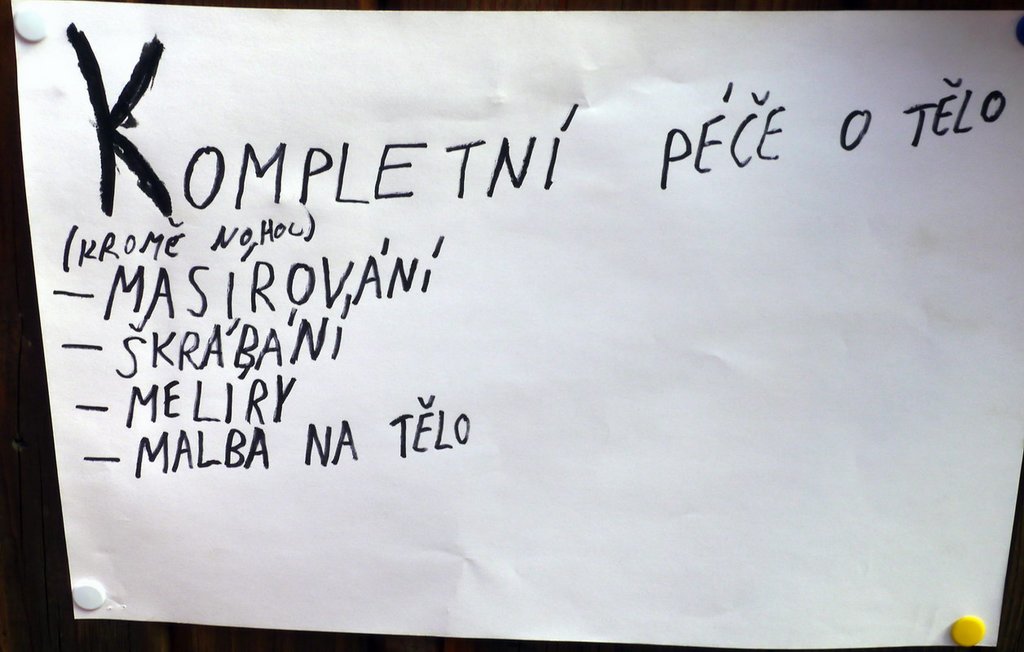 KOMPLETNÍ PÉČE O TĚLO
(KROMĚ NOHOU)
– MASÍROVÁNÍ
– ŠKRÁBÁNÍ
– MELÍRY
– MALBA NA TĚLO